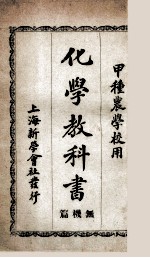 甲種農學校用
化學教科書
無機篇
上海新學會社發行